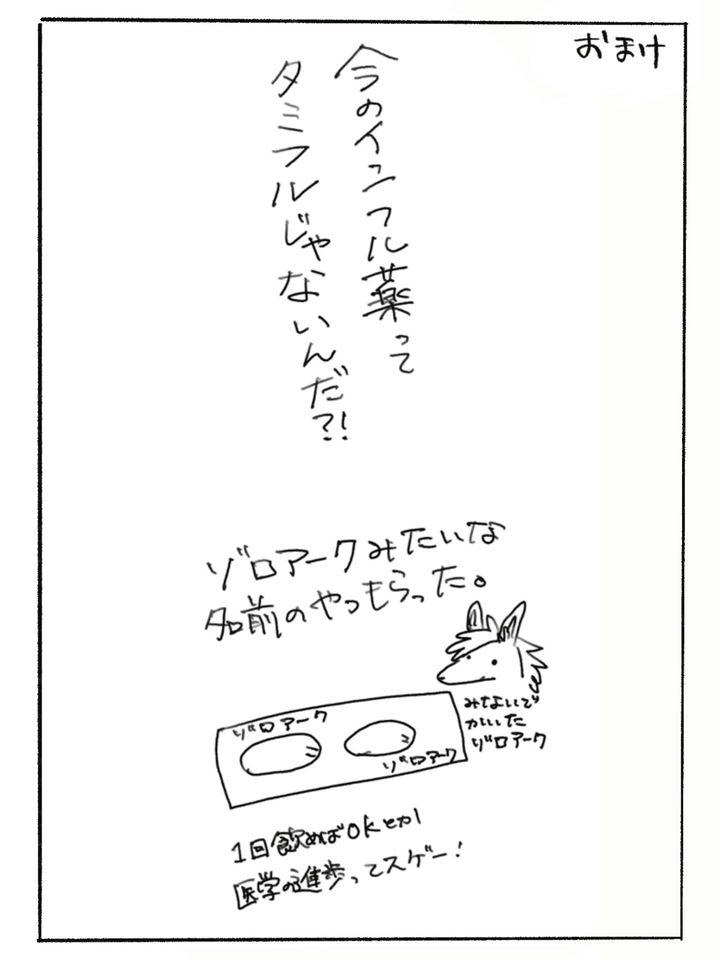 おまけ
今のインフル薬って
タミフルじゃないんだ?!
ゾロアークみたいな
名前のやつもらった。
みないで
かいた
ゾロアーク
ゾロアーク
ゾロアーク
1回飲めばOKとか
医学の進歩ってスゲー!